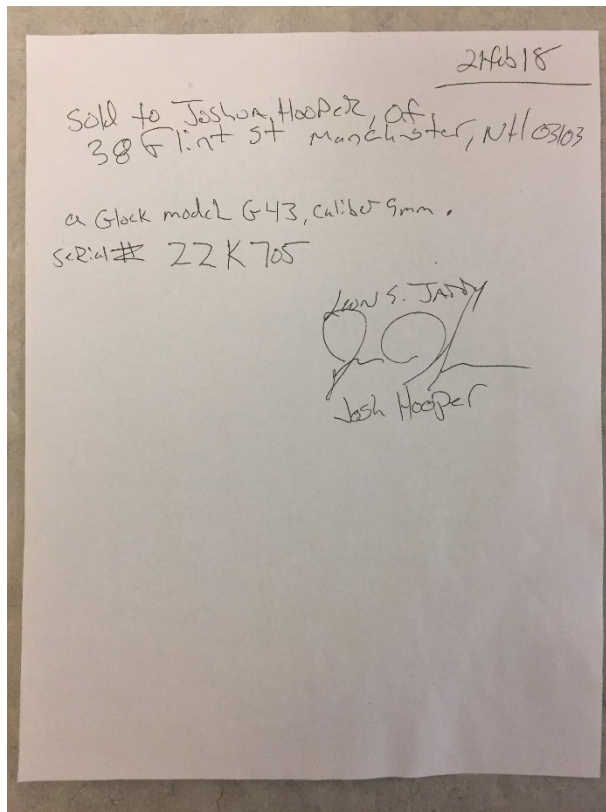 21feb18
Sold to Joshua Hooper, of
38 Flint St Manchester, NH 03103
a Glock model G43, caliber 9mm.
SeRial# ZZK705
Leon S.
Josh Hooper